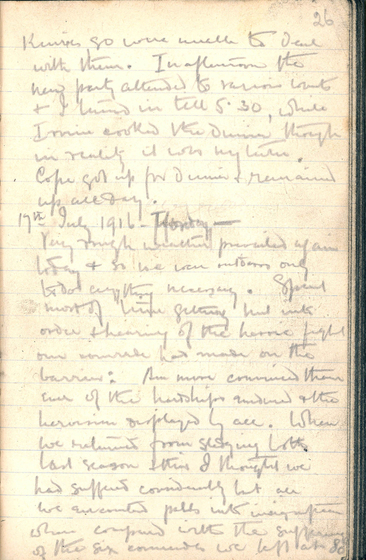 26
Knives so were unable to deal
with them. In afternoon the
new party attended to various
& I turned in till 5.30, while
Irvine cooked the Dinner though
in reality it was my turn.
Cope got up for Dinner & remained
up all day.
17th July 1916 - Monday -
Very rough weather prevailed again
today & so we were outdoors only
to do anything necessary. Spent
most of time getting hut into
order & hearing of the heroic fight
our comrade had made on the
barrier. Am more convinced than
ever of the hardships endured & the
heroism displayed by all. When
we returned from sledging both
last season & this I thought we
had suffered considerably but all
we encountered palls into insignificance
when compared with the suffering
of the six comrades we left at 80